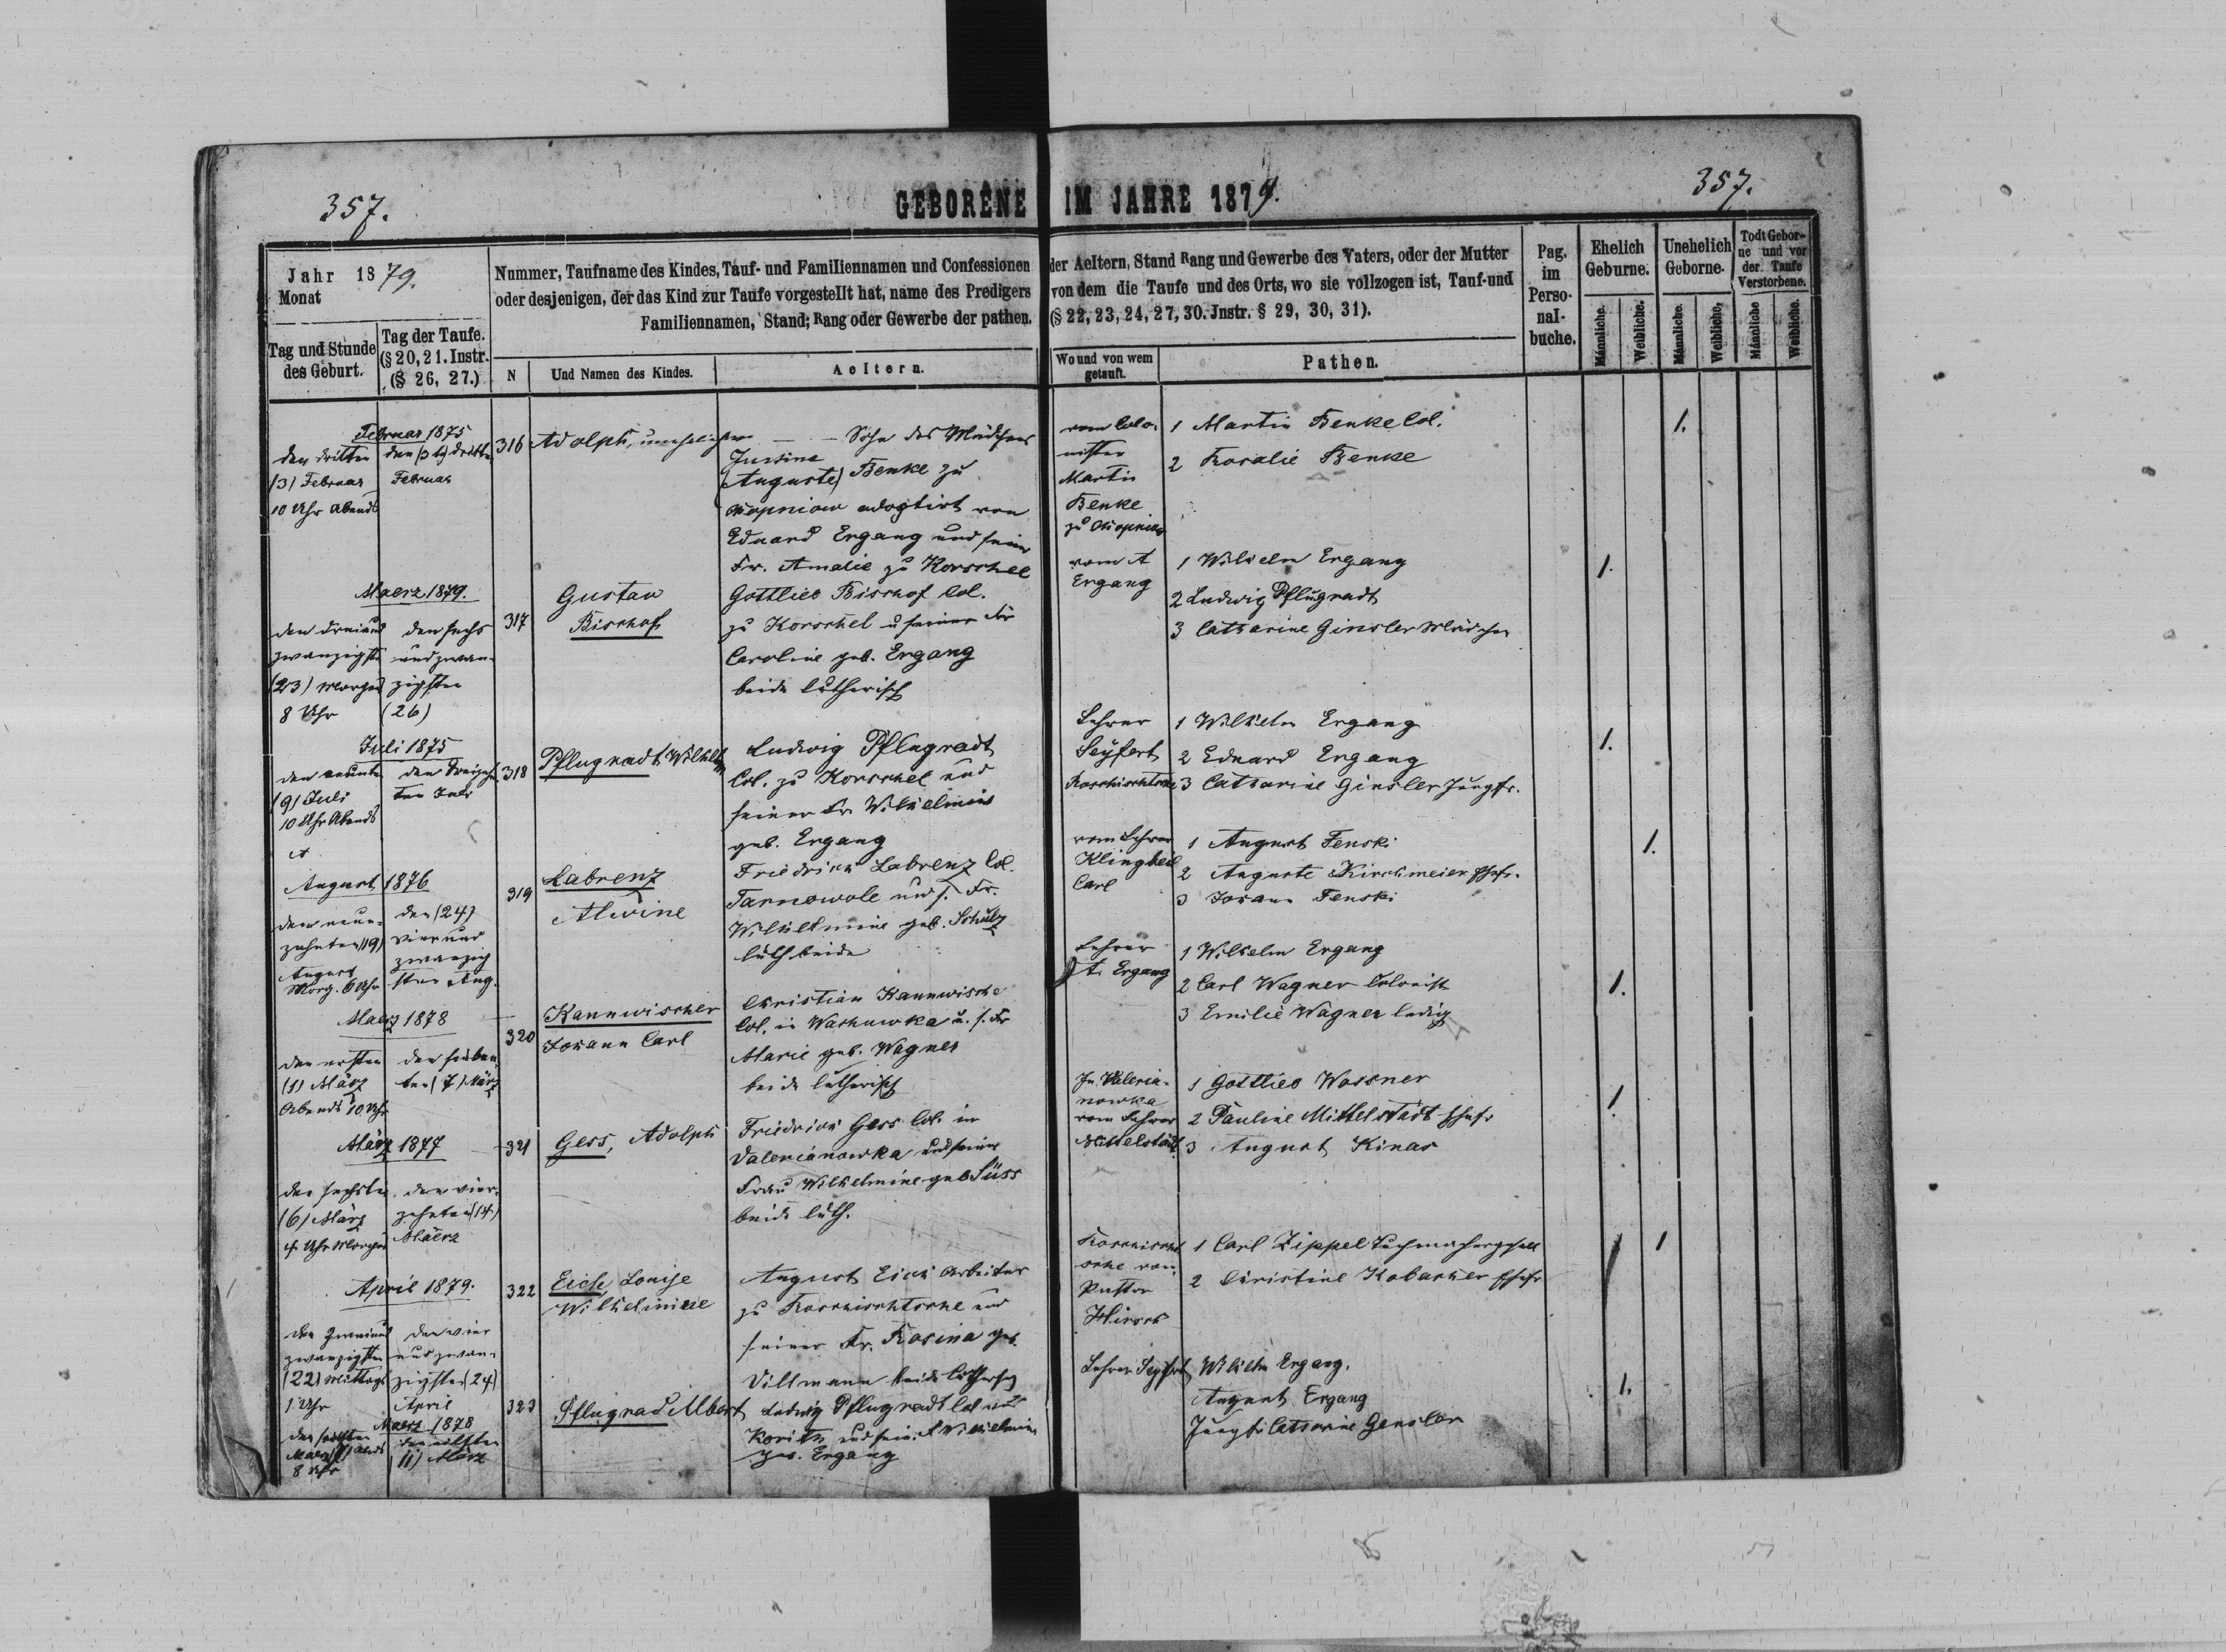 357.
GEBORENE IM JAHRE 1879.
357.
Jahr 1879.
Monat
Tag und Stunde des Geburt.
Tag der Taufe.
(§ 20, 21. Instr.
(§ 26, 27.)
Nummer, Taufname des Kindes, Tauf- und Familiennamen und Confessionen
oder desjenigen, der das Kind zur Taufe vorgestellt hat, name des Predigers
Familiennamen, Stand; Rang oder Gewerbe der pathen.
N
Und Namen des Kindes.
Aeltern.
der Aeltern, Stand Rang und Gewerbe des Vaters, oder der Mutter
von dem die Taufe und des Orts, wo sie vollzogen ist, Tauf-und
(§ 22, 23, 24, 27, 30. Jnstr. § 29, 30, 31).
Wo und von wem getauft.
Pathen.
Pag. im Perso- nal- buche.
Ehelich Geburne.
Unehelich Geborne.
Todt Gebor- ne und vor der Taufe Verstorbene.
Männliche.
Weibliche.
Männliche.
Weibliche.
Männliche
Weibliche.
Februar 1875
den dritten
(3) Februar
10 Uhr Abends
Februar
316
Adolph,
Sohn des Mädchens
Jussine
(Auguste) Benke zu
adoptirt von
Eduard Ergang und seiner
Fr. Amalie zu Korschel
vom Colo-
nisten
Martin
Benke
1 Martin Benke Col.
2 Rosalie Benke
1.
Maerz 1879.
den dreiund
zwanzigsten
(23) Morgens
8 Uhr
den sechs
und zwan-
zigsten
(26)
317
Gustav
Bischof
Gottlieb Bischof Col.
zu Korschel u seiner Fr
Caroline geb. Ergang
beide lutherisch
vom A
Ergang
1 Wilhelm Ergang
2 Ludwig Pflugradt
3 Catharine Ginsler Mädchen
1.
Juli 1875
den neunten
(9) Juli
10 Uhr Abends
den dreizehn
ten Juli
318
Pflugradt Wilhelm
Ludwig Pflugradt
Col. zu Korschel und
seiner Fr. Wilhelmine
geb. Ergang
Lehrer
Seyfert
Roschischtsche
1 Wilhelm Ergang
2 Eduard Ergang
3 Catharine Ginsler Jungfr.
1.
August 1876
den neun-
zehnten (19)
August
Morg. 6 Uhr
den (24)
vier und
zwanzig
sten Aug.
319
Labrenz
Alwine
Friedrich Labrenz Col.
Tarnowole und s. Fr.
Wilhelmine geb. Schulz
luth beide
vom Lehrer
Klingbeil
Carl
1 August Fenski
2 Auguste Kirchmeier
3 Johann Fenski
1.
Maerz 1878
den ersten
(1) März
Abends 10 Uhr
den sieben
ten (7) März
320
Kannwischer
Johann Carl
Christian Kannwische
Col. in Waknuwka u. s. Fr
Marie geb. Wagner
beide lutherisch
Lehrer
A. Ergang
1 Wilhelm Ergang
2 Carl Wagner Colonist
3 Emilie Wagner ledig
1.
März 1877
den sechsten
(6) März
4 Uhr Morgens
den vier-
zehnten (14)
Maerz
321
Gess, Adolph
Friedrich Gess Col. in
Valerianowka und seiner
Frau Wilhelmine geb Süss
beide luth.
In Valeria-
nowka
vom Lehrer
Mittelstädt
1 Gottlieb Wassner
2 Pauline Mittelstädt
3 August Kinas
1
April 1879.
den zweiund
zwanzigsten
(22) Mittags
1 Uhr
den vier
und zwan-
zigsten (24)
April
322
Eich, Louise
Wilhelmine
August Eich Arbeiter
zu Roschischtsche und
seiner Fr. Rosina geb.
Dillmann beide lutherisch
Roschischt
sche von
Pastor
1 Carl Zippel Tuchmachergesell
2 Christine
1
Maerz 1878
8 Uhr
den elften
(11) März
323
Pflugrad Albert
Ludwig Pflugradt Col
und sein. F. Wilhelmine
geb. Ergang
Lehrer Seyfert
Wilhelm Ergang.
August Ergang
Jungfr Catharine Gensler
1.